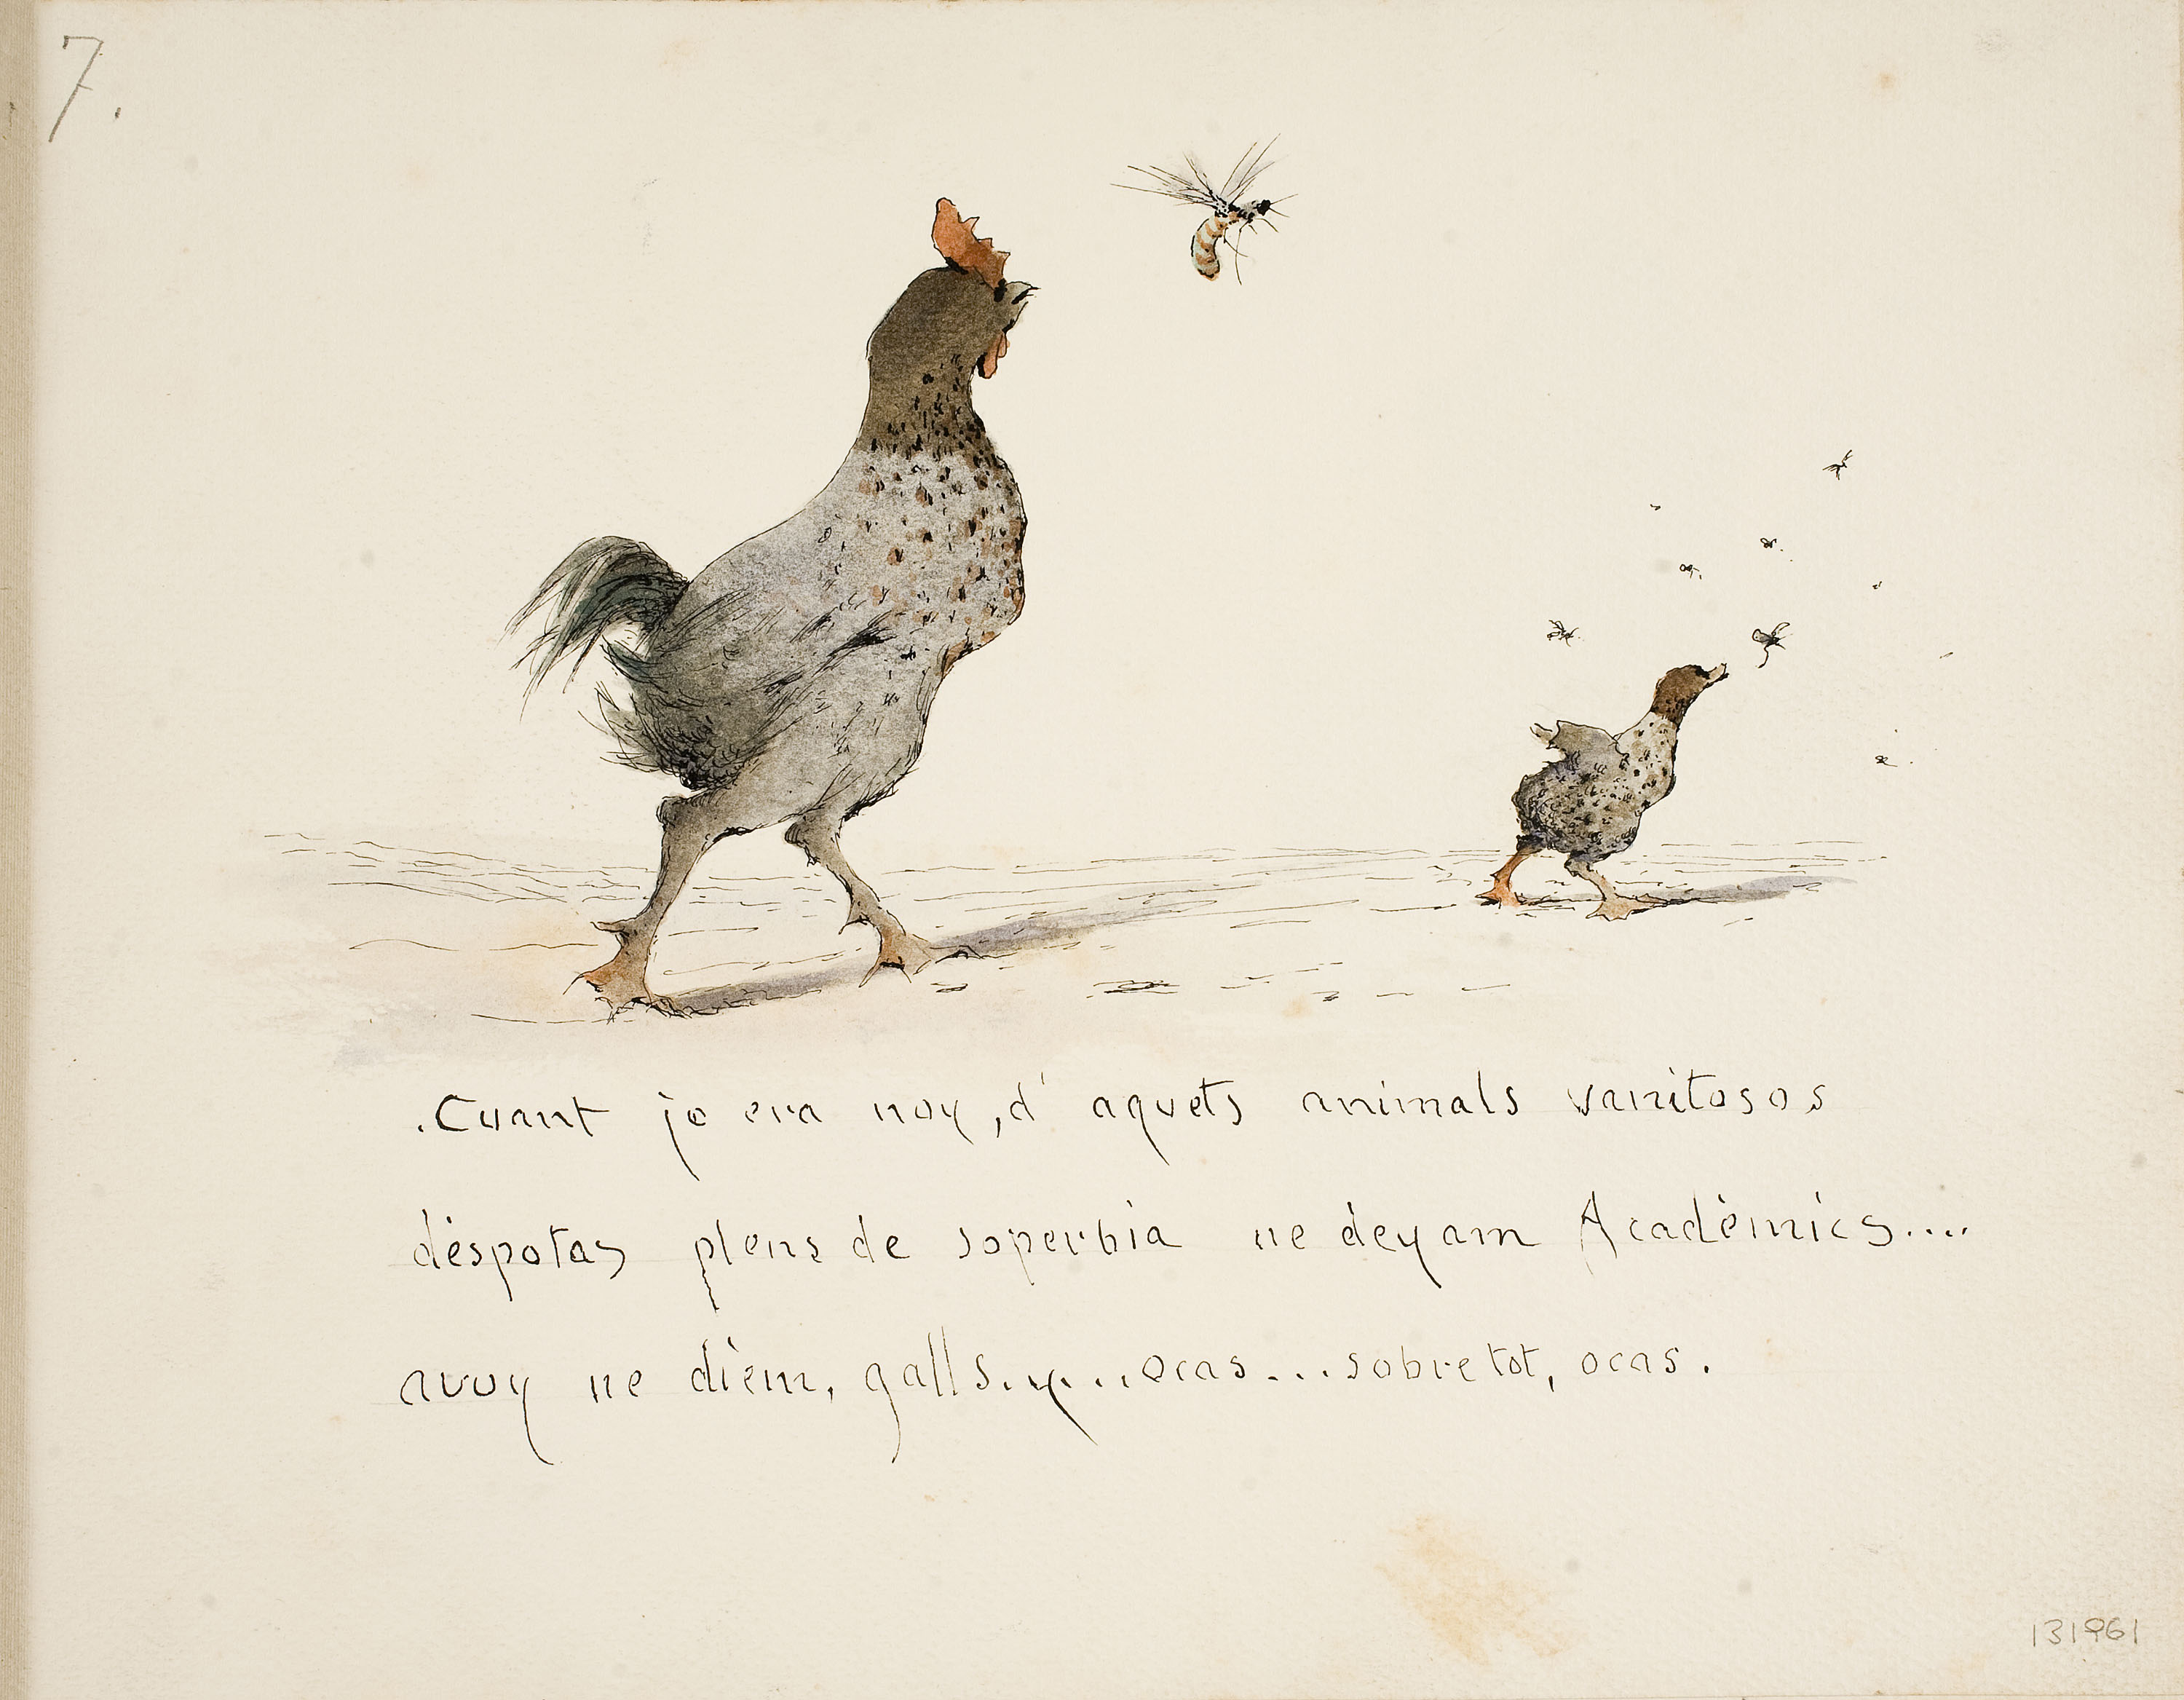 7.
.Cuant jo era noy, d' aquets animals vanitosos
déspotas plens de soperbia ne déyam Académics....
avuy ne diém, galls..y...ocas...sobre tot, ocas.
131961